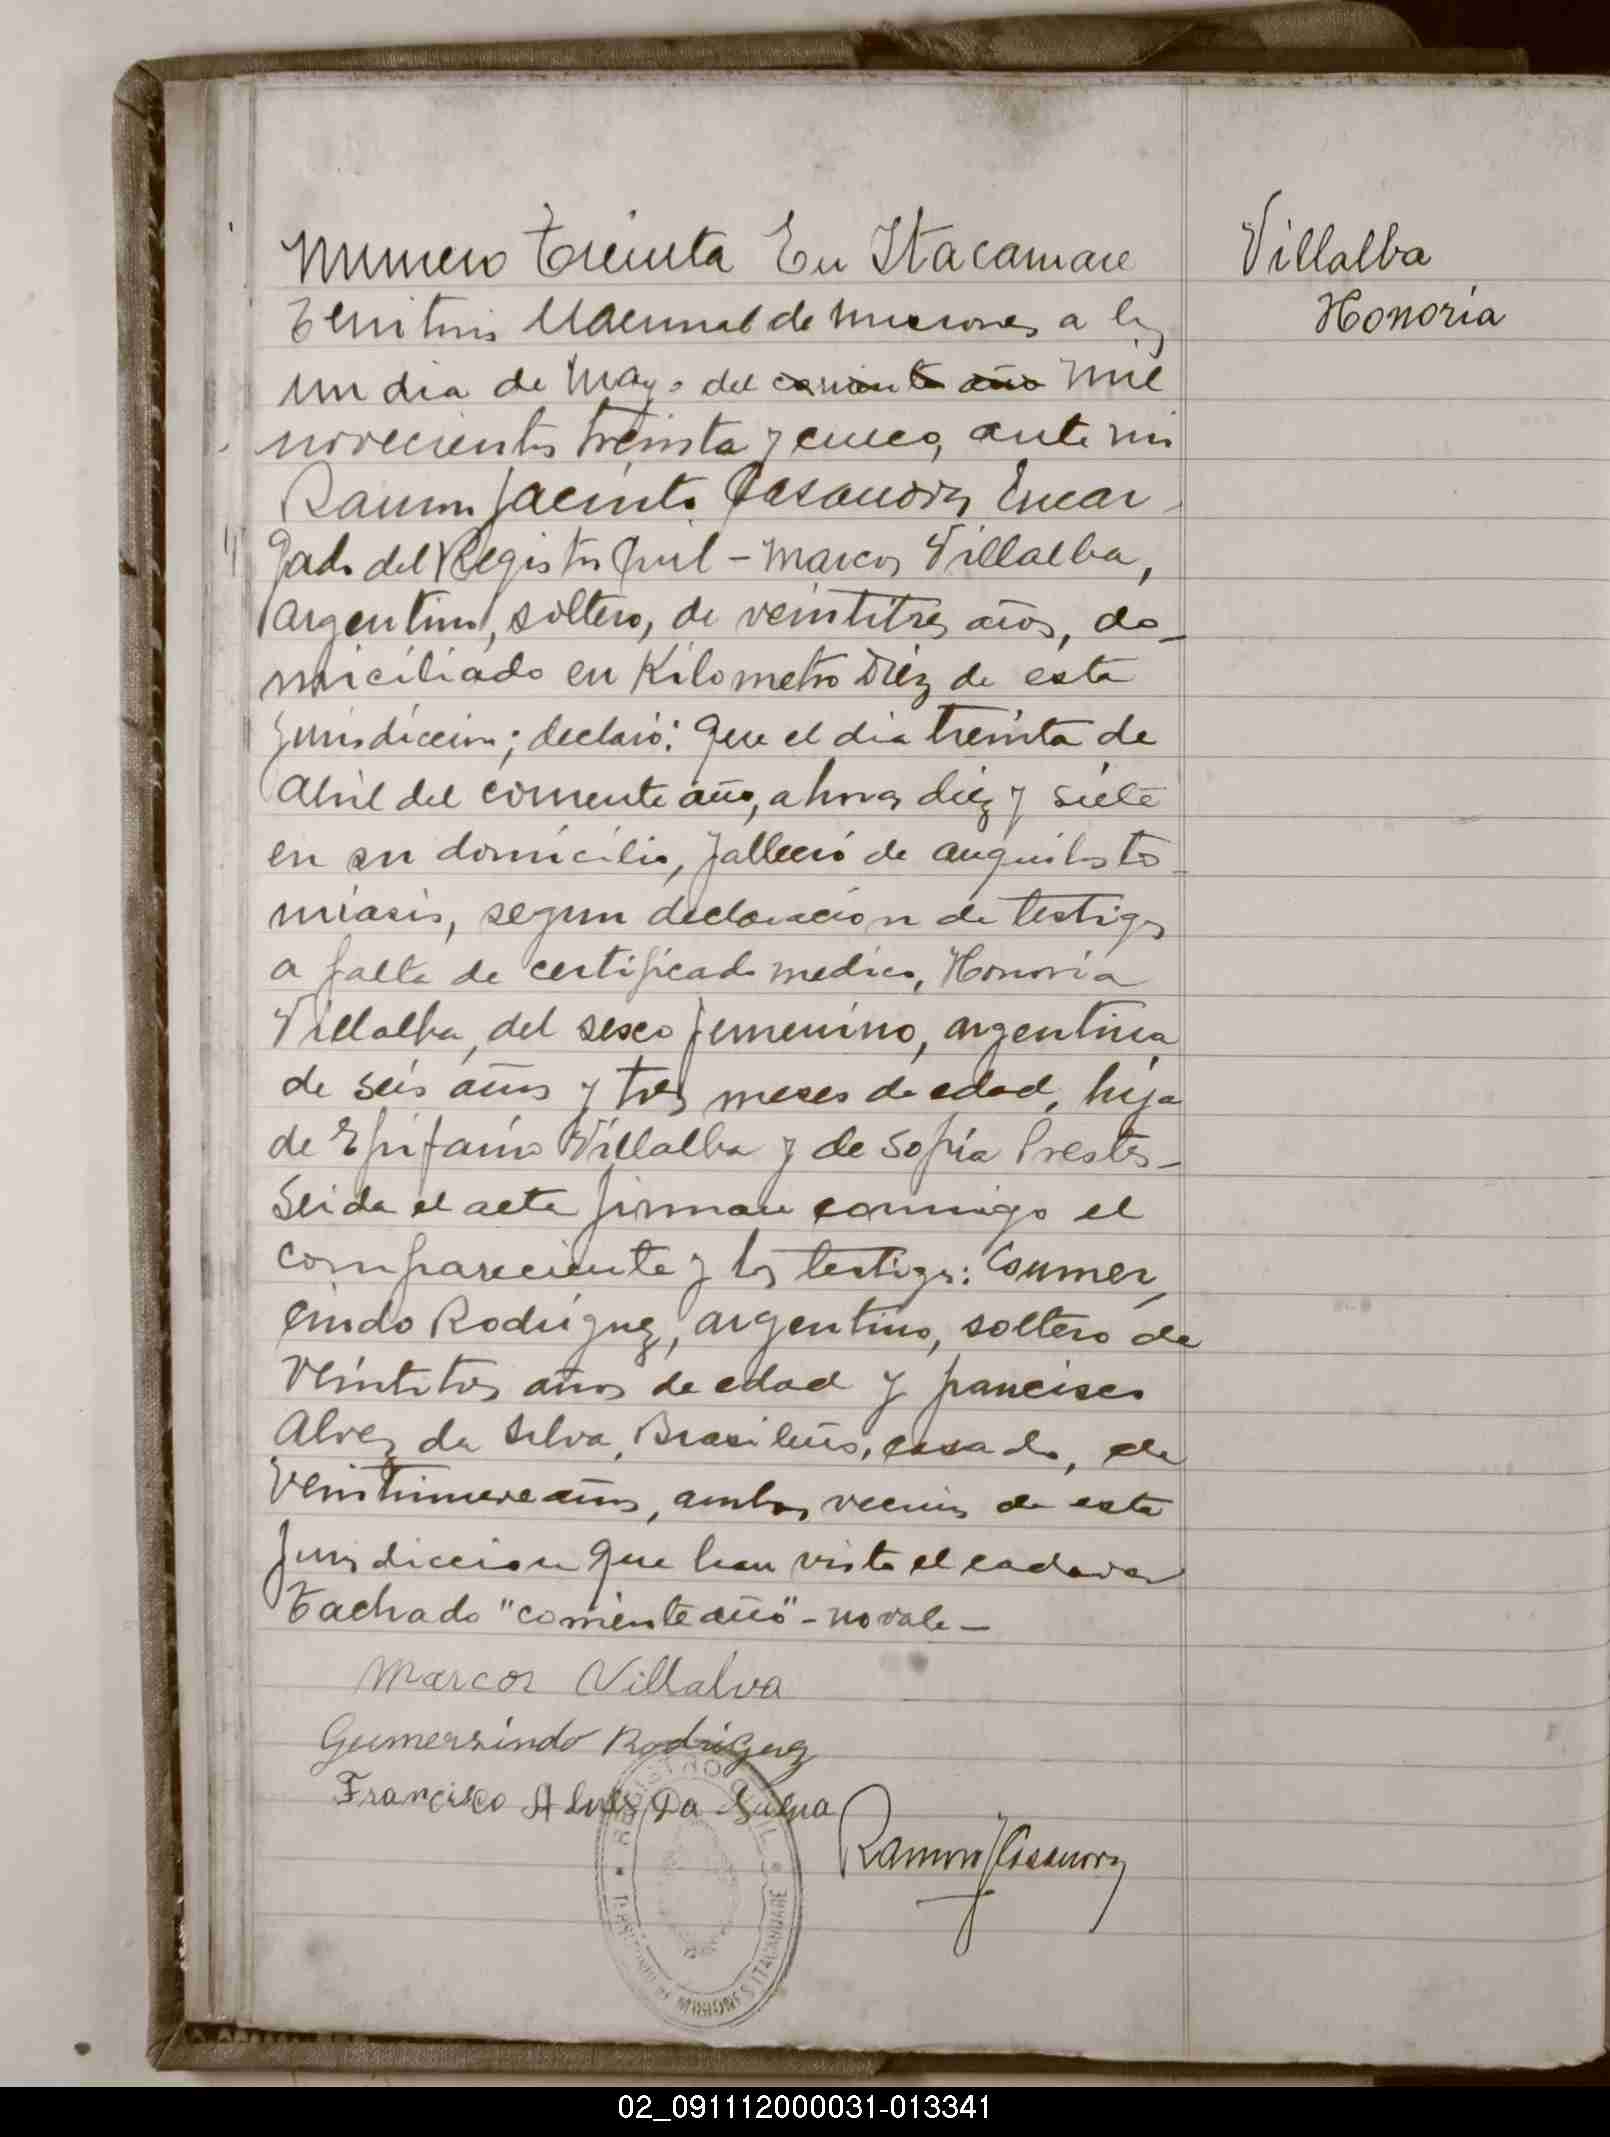 Numero Treinta En Itacaruare
Territorio Nacional de Misiones a los
un dia de Mayo del corriente año mil
novecientos treinta y cinco, ante mi
Ramon Jacinto Casanova Encar
gado del Registro Civil - Marcos Villalba,
argentino, soltero, de veintitres años, do_
miciliado en Kilometro Diéz de esta
jurisdiccion; declaró: Que el dia treinta de
abril del corriente año, a horas diéz y siete
en su domicilio, falleció de anquilosto_
miasis, segun declaracion de testigos
a falta de certificado medico, Honoria
Villalba, del sexo femenino, argentina
de seis años y tres meses de edad, hija
de Epifanio Villalba y de Sofia Prestes_
Leida el acta firman conmigo el
compareciente y los testigos: Gumer_
cindo Rodriguez, argentino, soltero de
veintitres años de edad y francisco
Alvez da Silva, Brasileño, casado, de
veintinueve años, ambos vecinos de esta
jurisdiccion que han visto el cadaver
Tachado "corriente año" - no vale_
Marcos Villalva
Gumersindo Rodriguez
Francisco Alves Da Silva
Ramon J Casanova
REGISTRO CIVIL
TERRITORIO DE MISIONES ITACARUARE
Villalba
Honoria
02_091112000031-013341